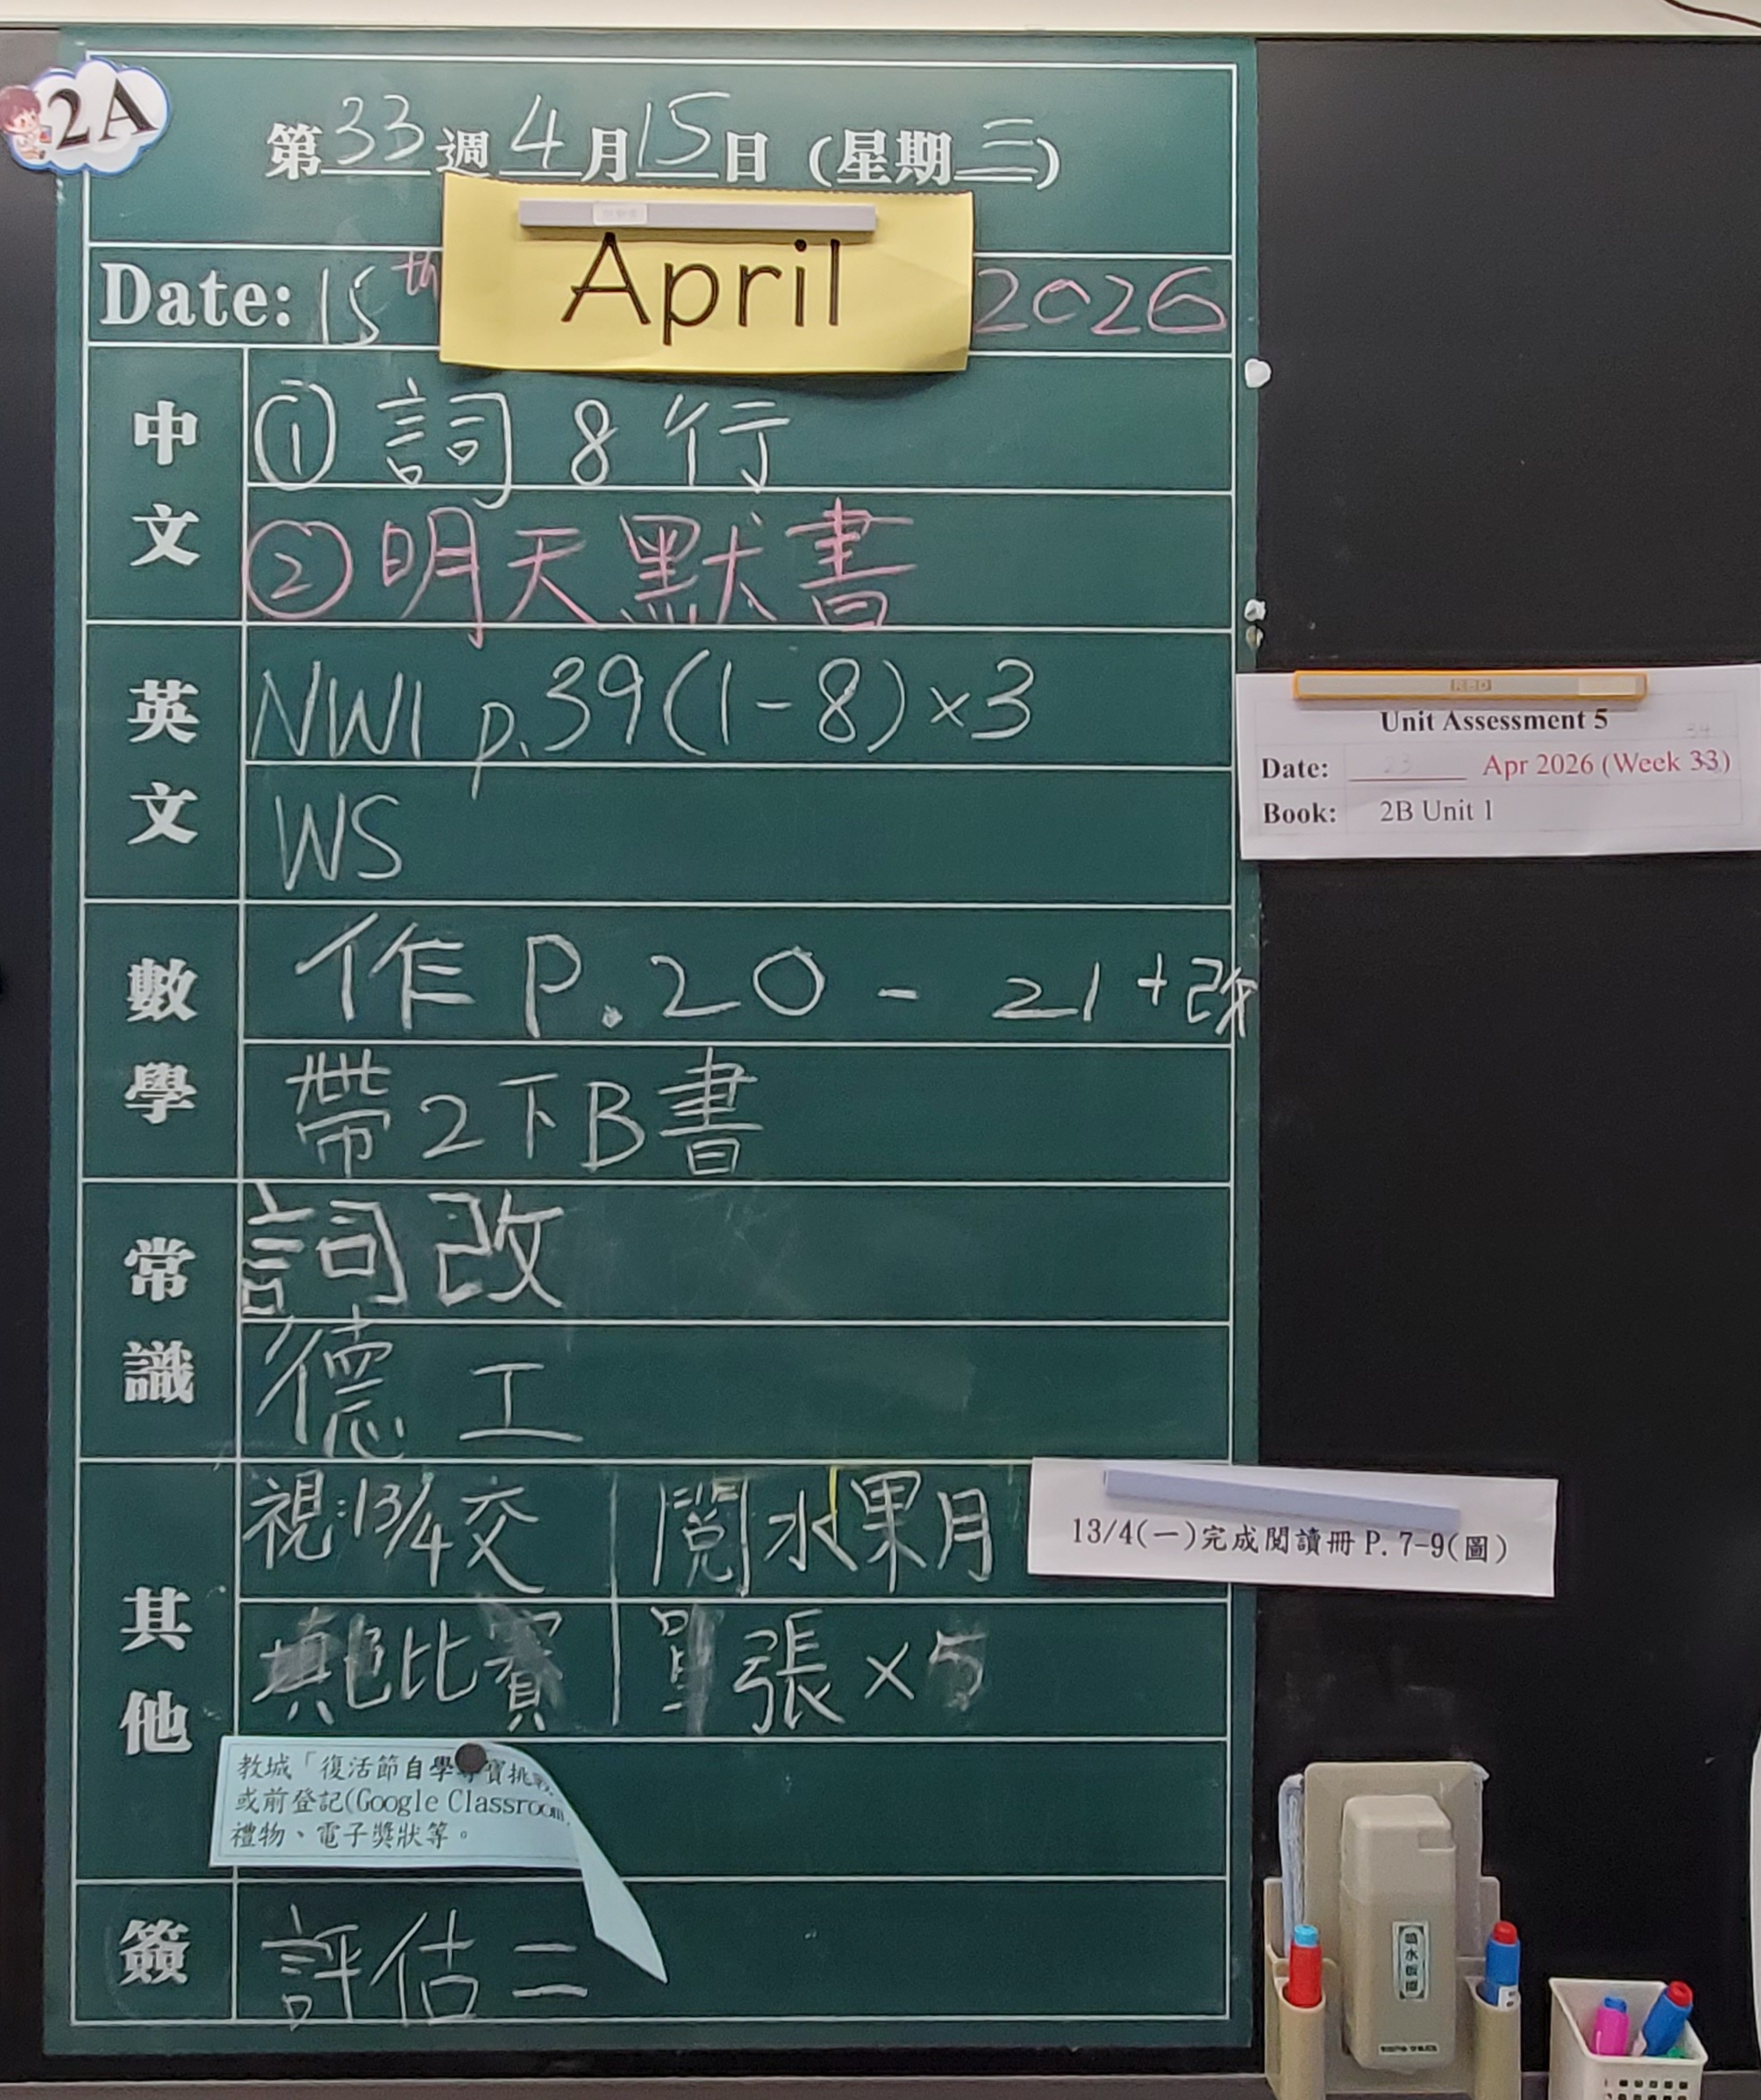 2A
第33週4月15日（星期三）
April
Date: 15th 2026
中文
① 詞 8 行
② 明天默書
英文
NW1 p.39(1-8)×3
WS
Unit Assessment 5
Date: 23 Apr 2026 (Week 33)
34
Book: 2B Unit 1
數學
作 P.20 - 21 + 改
帶2下B書
常識
詞改
德 工
其他
視:13/4交 閱水果月
13/4(一)完成閱讀冊 P. 7-9(圖)
填色比賽 單張×5
教城「復活節自學尋寶挑戰
或前登記(Google Classroom
禮物、電子獎狀等。
簽
評估二